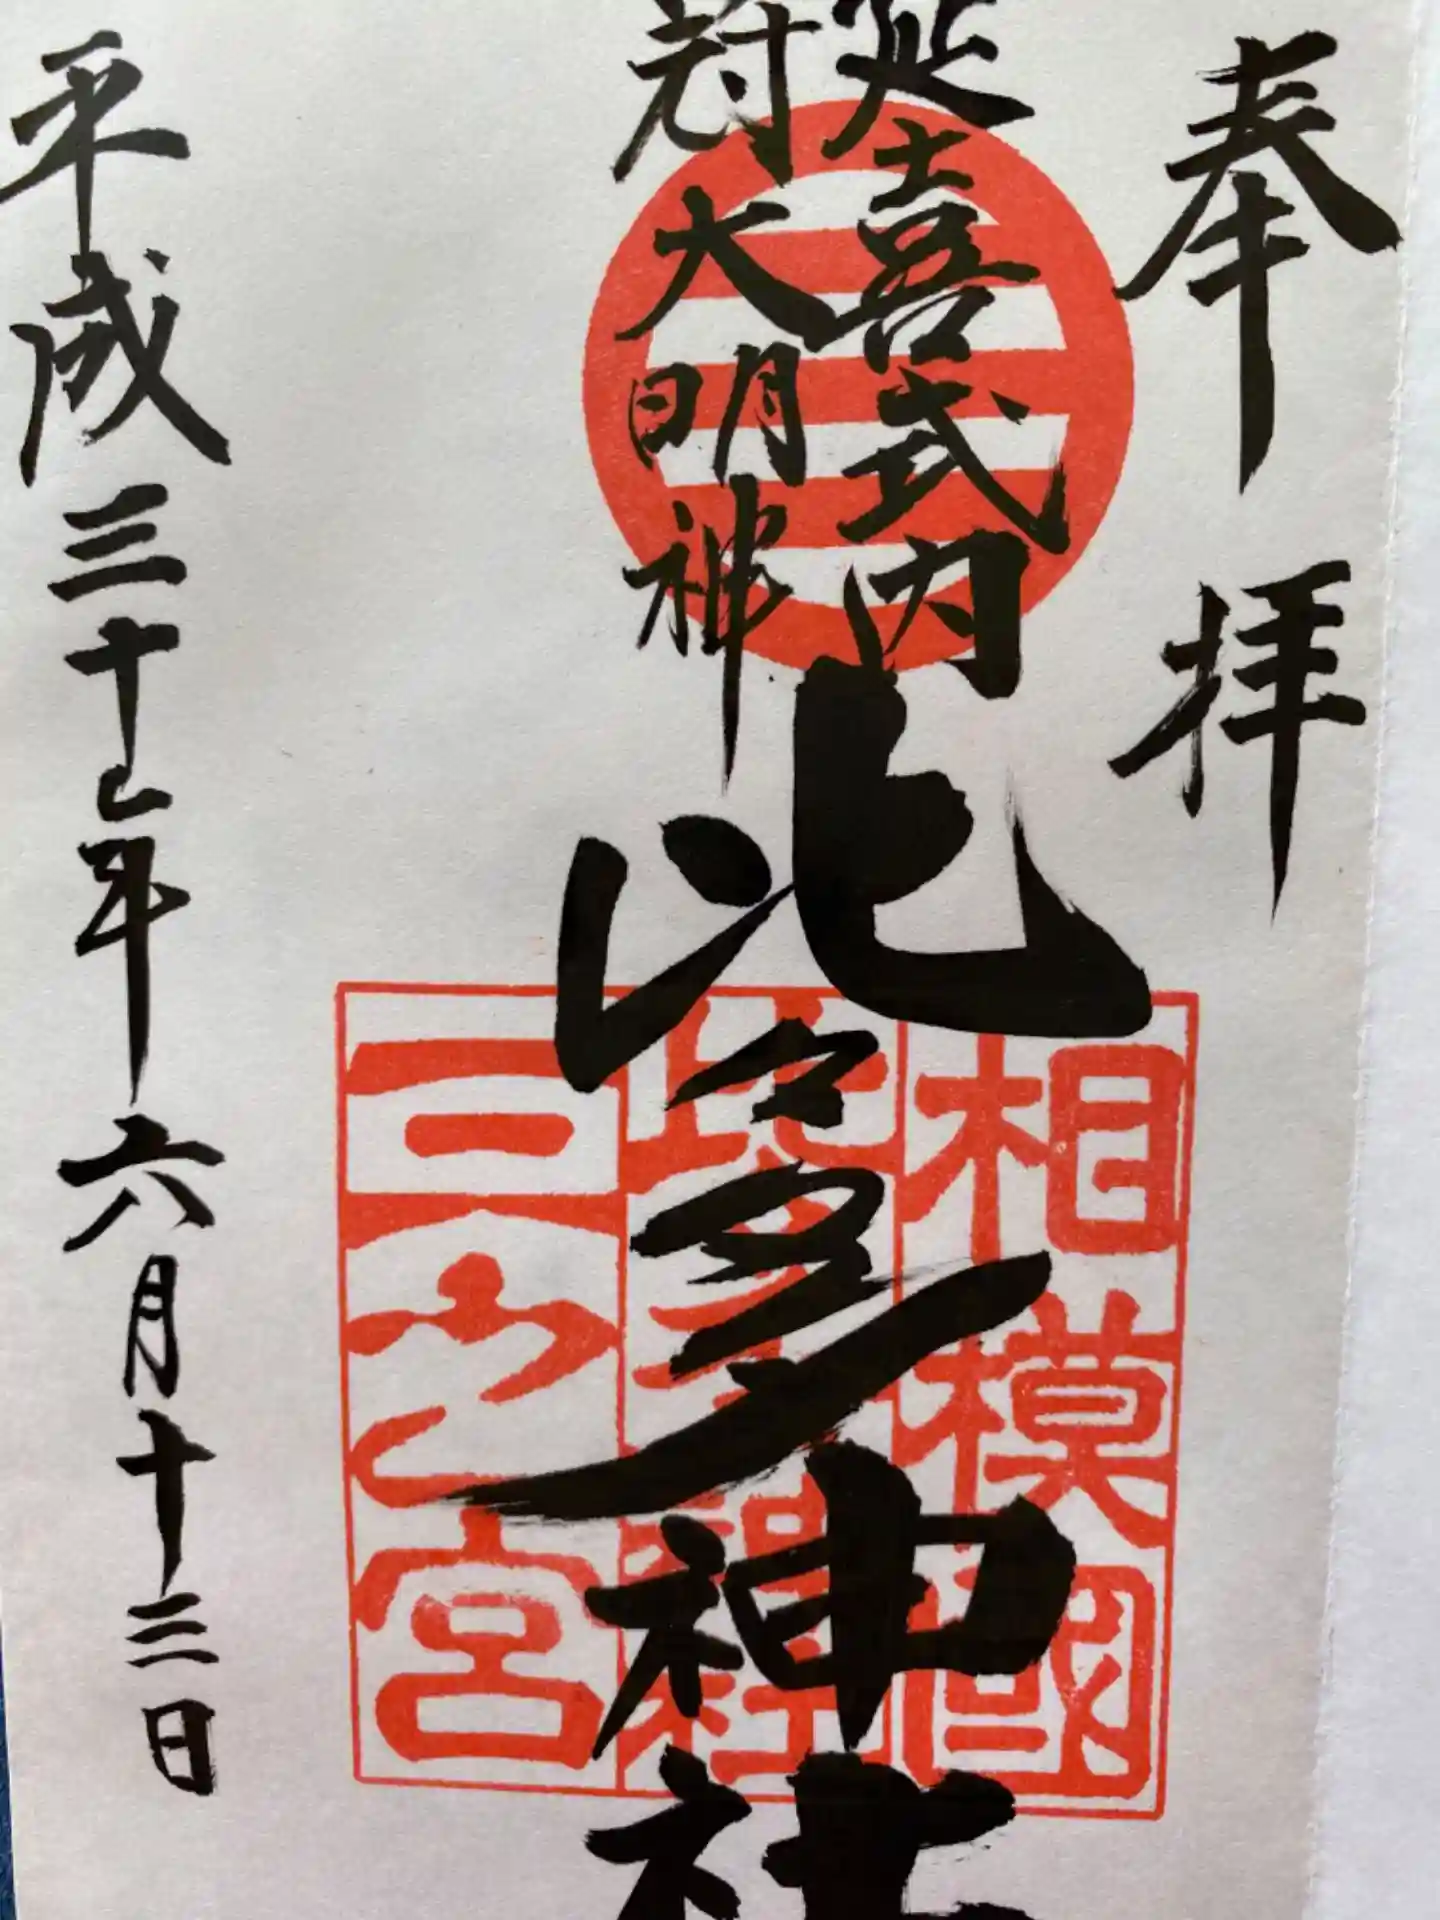 奉拝
延喜式内
冠大明神
比々多神社
相模國
比々多神社
三之宮
平成三十年六月十三日